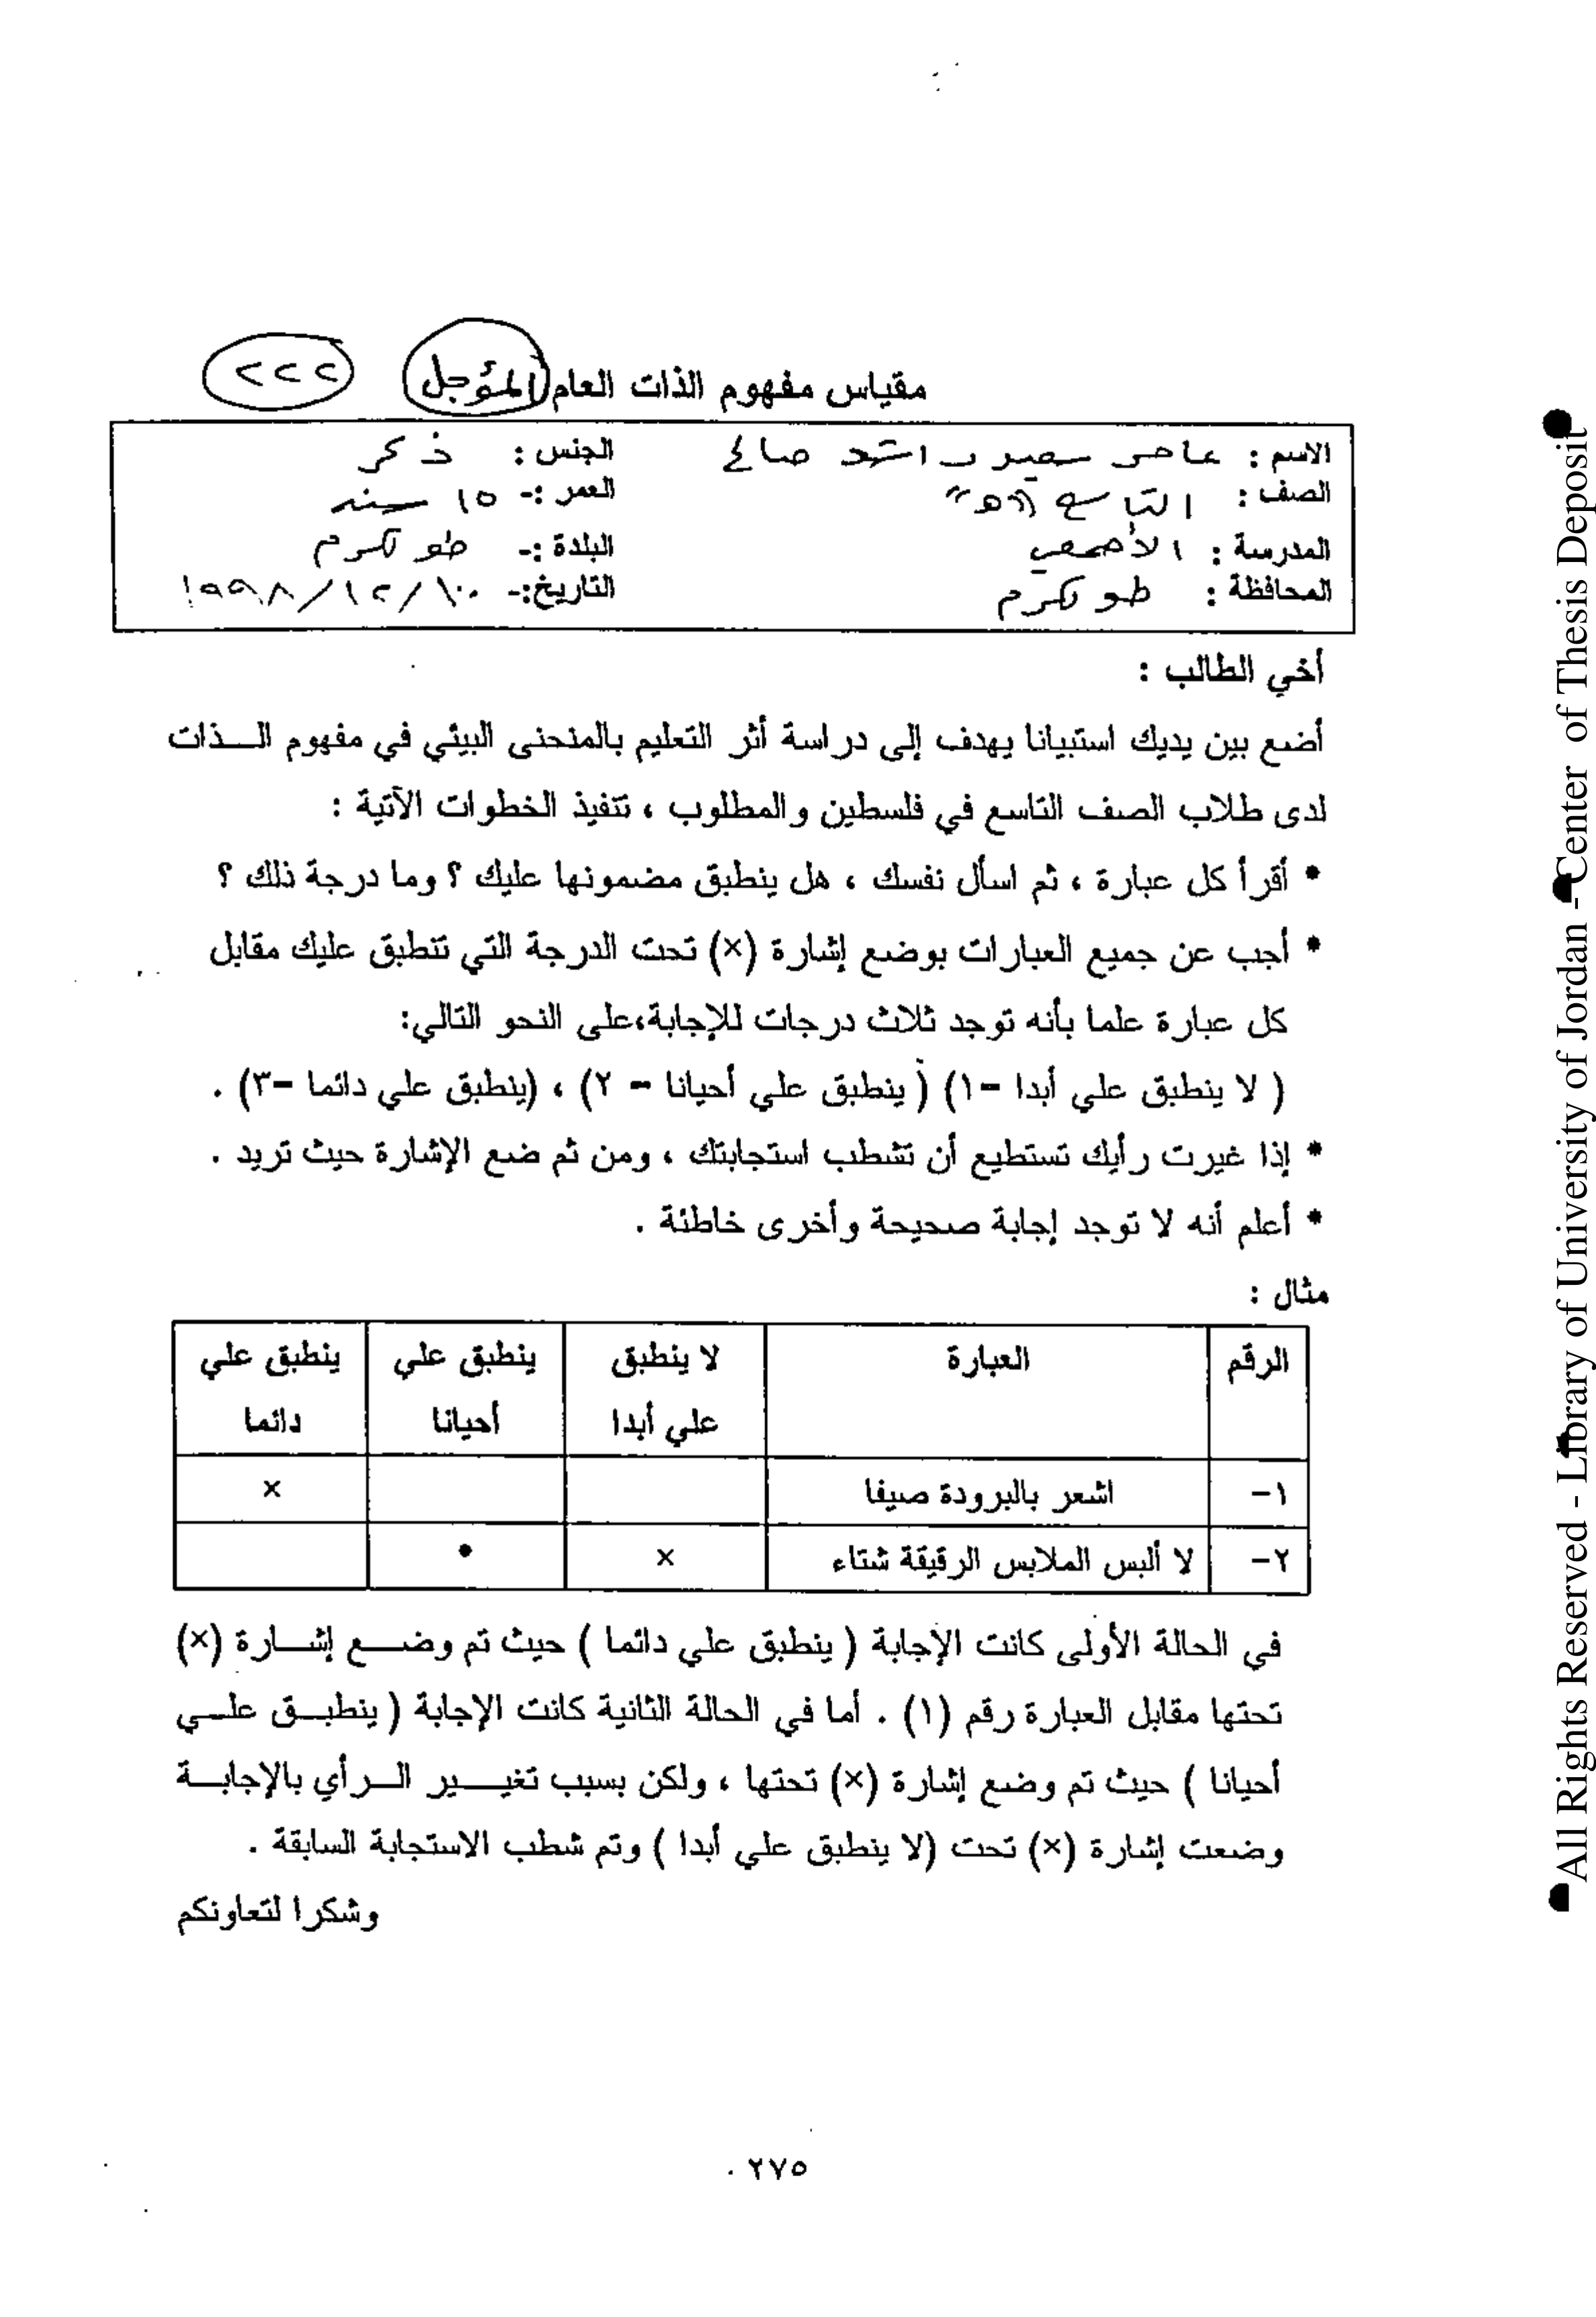 مقياس مفهوم الذات العام المؤجل ٢٢٢
الاسم : سمير راشد صالح الجنس : ذكر
الصف : التاسع "ه" العمر :- ١٥ سنه
المدرسة : البلدة :- طولكرم
المحافظة : طولكرم التاريخ:- ١٩٩٨/١٢/١٠
أخي الطالب :
أضع بين يديك استبيانا يهدف إلى دراسة أثر التعليم بالمنحنى البيئي في مفهوم الـــذات
لدى طلاب الصف التاسع في فلسطين والمطلوب ، تتفيذ الخطوات الآتية :
* أقرأ كل عبارة ، ثم اسأل نفسك ، هل ينطبق مضمونها عليك ؟ وما درجة ذلك ؟
* أجب عن جميع العبارات بوضع إشارة (×) تحت الدرجة التي تنطبق عليك مقابل
كل عبارة علما بأنه توجد ثلاث درجات للإجابة،على النحو التالي:
( لا ينطبق علي أبدا –١) ( ينطبق علي أحيانا – ٢) ، (ينطبق علي دائما –٣) .
* إذا غيرت رأيك تستطيع أن تشطب استجابتك ، ومن ثم ضع الإشارة حيث تريد .
* أعلم أنه لا توجد إجابة صحيحة وأخرى خاطئة .
مثال :
الرقم العبارة لا ينطبق ينطبق علي ينطبق علي
علي أبدا أحيانا دائما
١– اشعر بالبرودة صيفا ×
٢– لا ألبس الملابس الرقيقة شتاء × •
في الحالة الأولى كانت الإجابة ( ينطبق علي دائما ) حيث تم وضـــع إشـــارة (×)
تحتها مقابل العبارة رقم (١) . أما في الحالة الثانية كانت الإجابة ( ينطبــق علــي
أحيانا ) حيث تم وضع إشارة (×) تحتها ، ولكن بسبب تغيـــير الــرأي بالإجابــة
وضعت إشارة (×) تحت (لا ينطبق علي أبدا ) وتم شطب الاستجابة السابقة .
وشكرا لتعاونكم
٢٧٥
All Rights Reserved - Library of University of Jordan - Center of Thesis Deposit